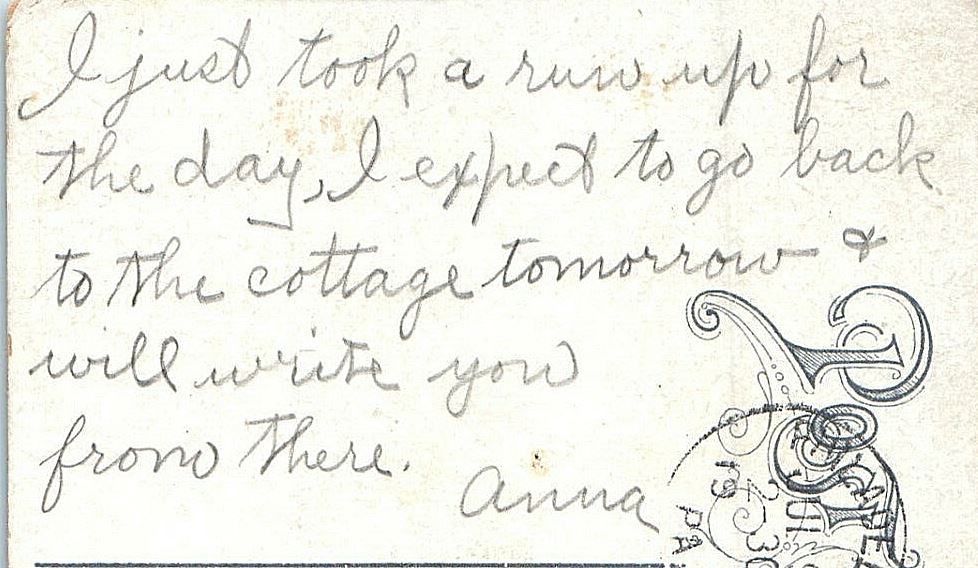 I just took a run up for
the day, I expect to go back
to the cottage tomorrow &
will write you
from there.
Anna
POST
JUL
23
PA